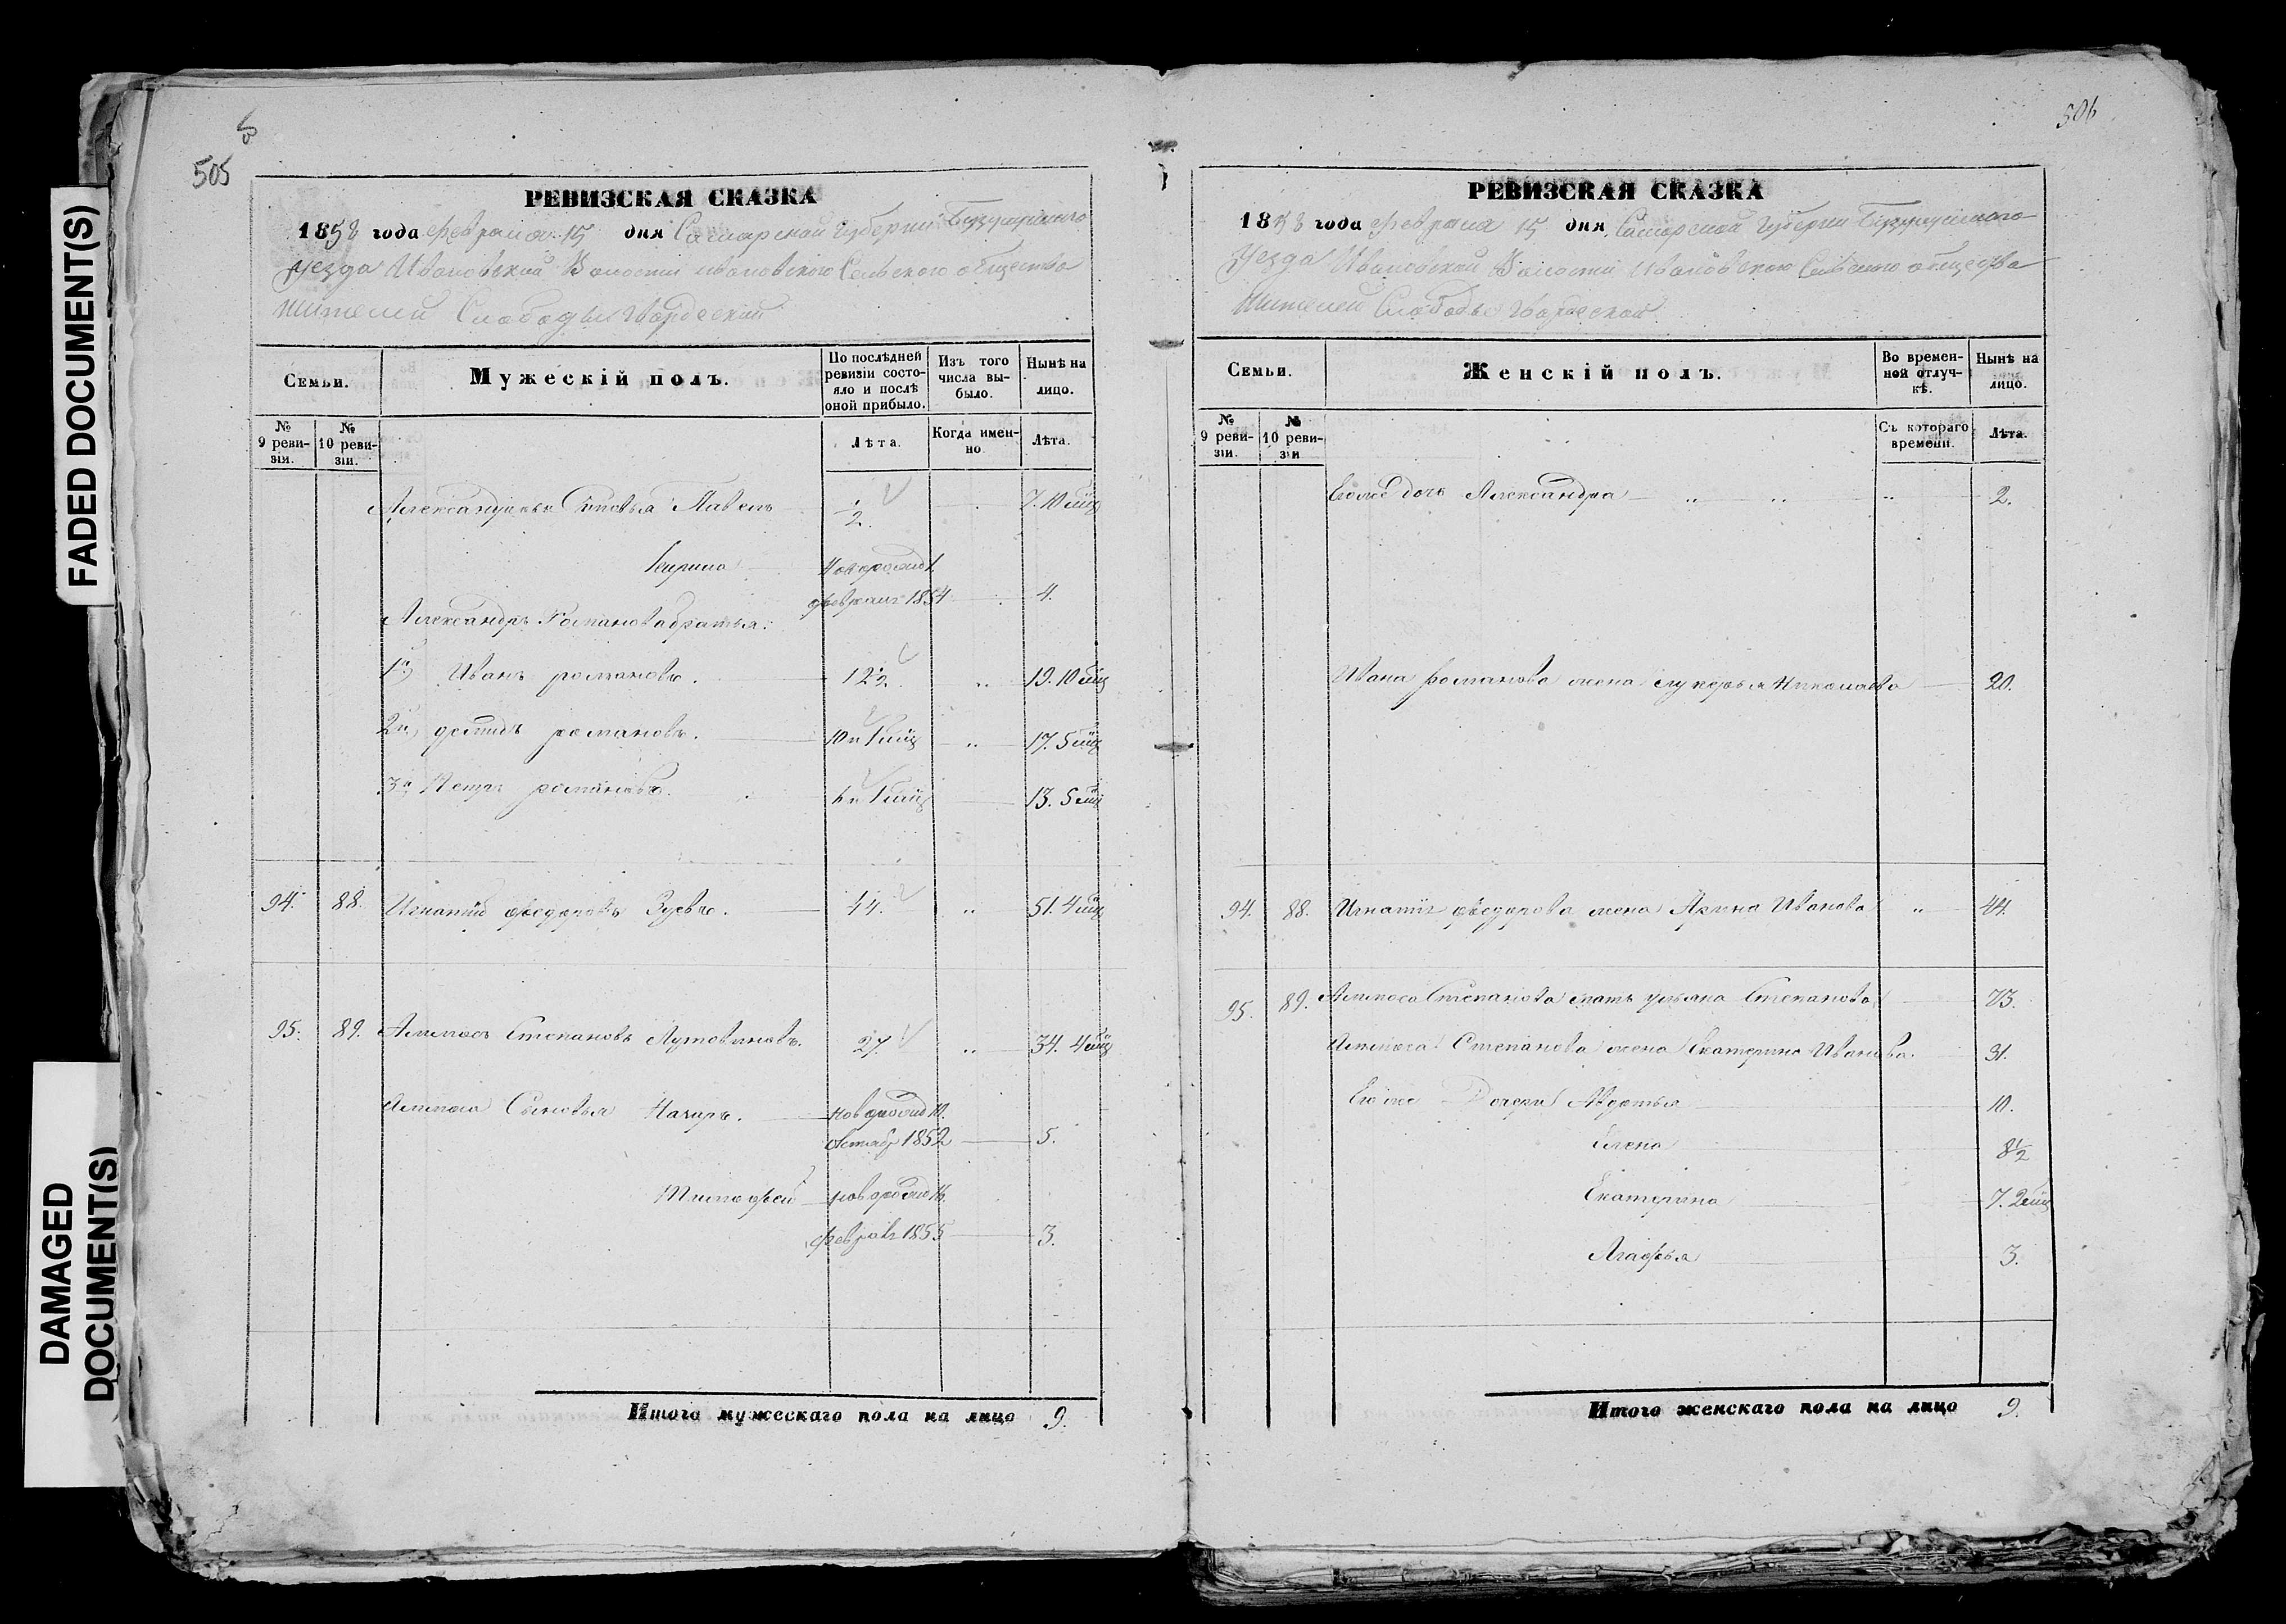 505
РЕВИЗСКАЯ СКАЗКА
1858 года февраля 15 дня Самарской Губернии Бузулукскаго
уезда Ивановской Волости Ивановского Сельского общества
жителей Слободы
Семьи.
Мужескій полъ.
По послѣдней ревизіи состояло и послѣ оной прибыло.
Изъ того числа выбыло.
Нынѣ на лицо.
№ 9 ревизіи.
№ 10 ревизіи.
Лѣта.
Когда именно
Лѣта.
Александровы Сыновья Павелъ ½ 7. 10 мцъ
новорожд 1.
февраля 1854 4.
Александръ Романова братья:
1й Иванъ романовъ. 12½ " 19. 10 мцъ
2й романовъ. 10 и " 17. 5 мцъ
3й Петръ романовъ. 13. 5 мцъ
94. 88. Игнатій федоровъ Зуевъ. 44. " 51. 4 мцъ
95. 89. Степановъ Лутовиновъ. 27. " 34. 4 мцъ
Сыновья Назаръ. новорожд 10.
октябр 1852 5.
Тимофей новорожд 16.
февраля 1855 3.
Итого мужескаго пола на лицо 9.
506
РЕВИЗСКАЯ СКАЗКА
1858 года февраля 15 дня Самарской Губернии Бузулукскаго
Уезда Ивановской Волости Ивановского Сельского общества
жителей Слободы
Семьи.
Женскій полъ.
Во временной отлучкѣ.
Нынѣ на лицо.
№ 9 ревизіи.
№ 10 ревизіи
Съ котораго времени.
Лѣта.
Его же дочь Александра " " " 2.
Ивана романова жена Лукерья Николаева 20.
94. 88. Игнатія федорова жена Арина Иванова " 44.
95. 89. Степанова мать Ульяна Степанова 73.
Степанова жена Екатерина Иванова. 31.
Его же Дочери Авдотья 10.
Елена 8½
Екатерина 7. 2 мцъ
Агафья 3.
Итого женскаго пола на лицо 9.
FADED DOCUMENT(S)
DAMAGED
DOCUMENT(S)